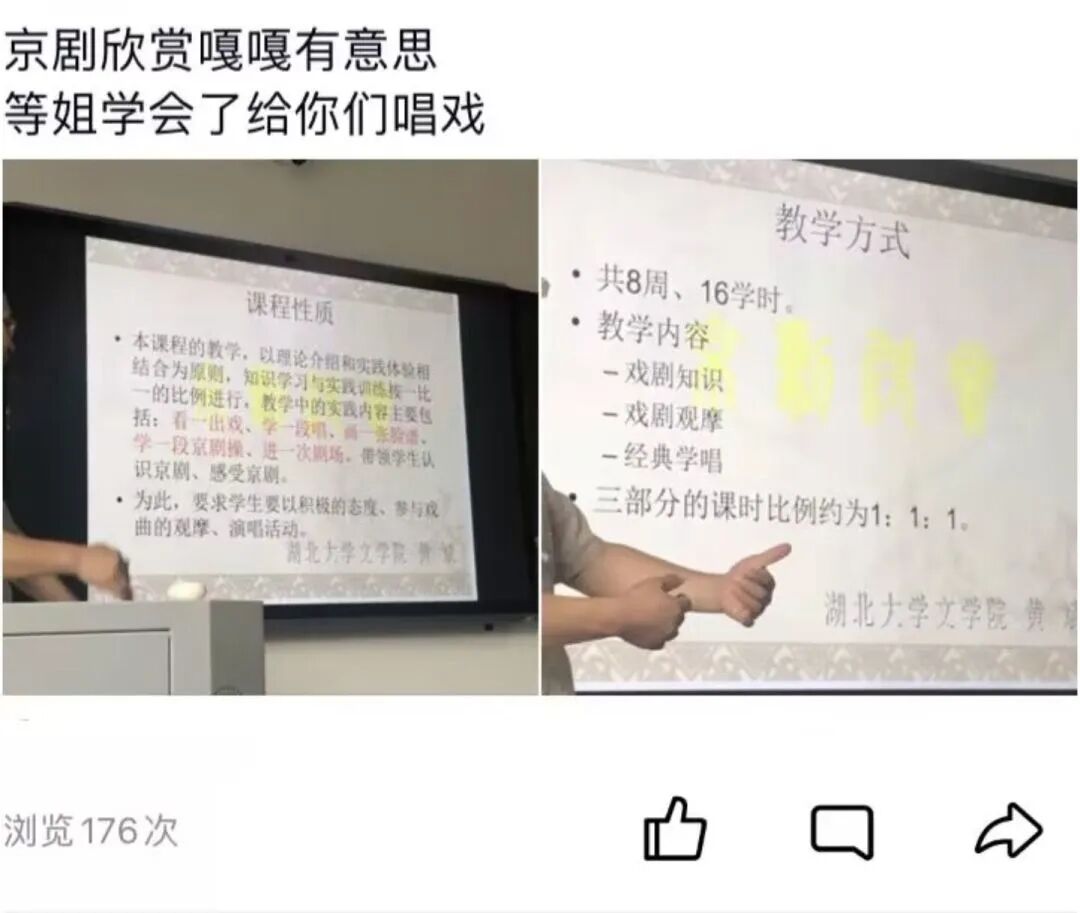 京剧欣赏嘎嘎有意思
等姐学会了给你们唱戏
课程性质
• 本课程的教学，以理论介绍和实践体验相
结合为原则，知识学习与实践训练按一比
一的比例进行，教学中的实践内容主要包
括：看一出戏、学一段唱、画一张脸谱、
学一段京剧操、进一次剧场。带领学生认
识京剧、感受京剧。
• 为此，要求学生要以积极的态度、参与戏
曲的观摩、演唱活动。
湖北大学文学院 黄 斌
教学方式
• 共8周、16学时。
• 教学内容
– 戏剧知识
– 戏剧观摩
– 经典学唱
• 三部分的课时比例约为1：1：1。
湖北大学文学院 黄
浏览176次